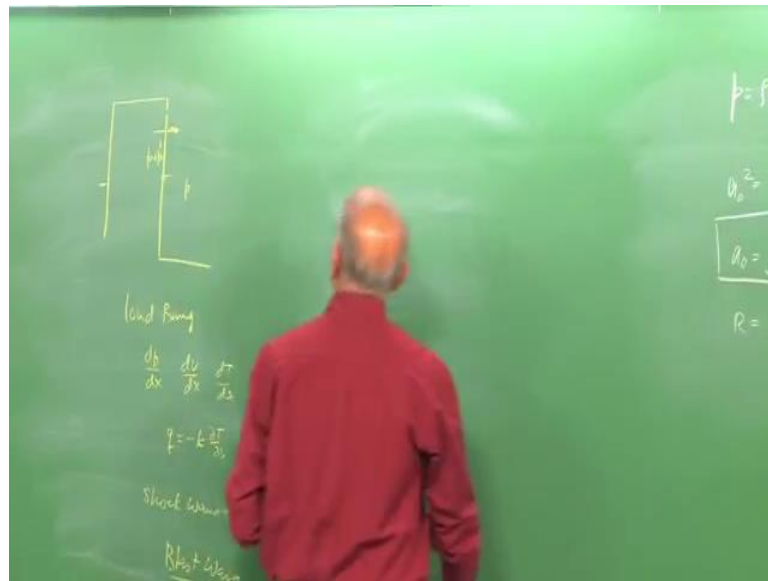 p
loud Bang
dp/dx du/dx dT/dx
q = -k ∂T/∂x
Shock wave
Blast wave
p =
a₀² =
a₀ =
R =